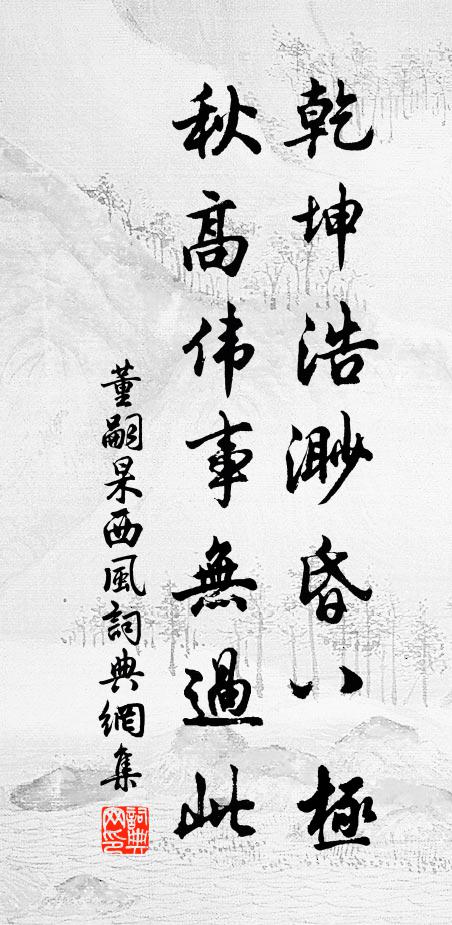 乾坤浩渺昏八極
秋高伟事無過此
董嗣杲西風詞典網集
詞典网印